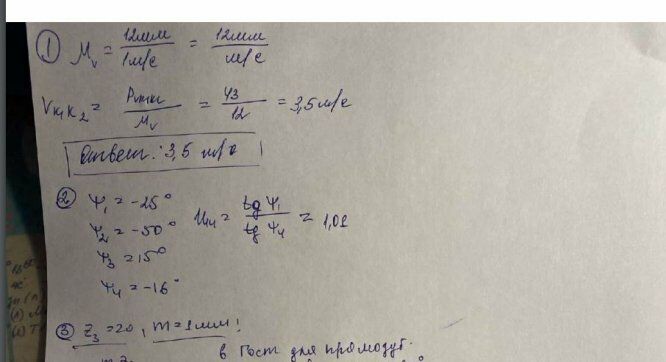 ① μv = 12мм / 1м/с = 12мм / м/с
Vк₁к₂ = Pк₁к₂ / μv = 43 / 12 = 3,5 м/с
Ответ: 3,5 м/с
② Ψ₁ = -25°
Ψ₂ = -50° U₁₄ = tg Ψ₁ / tg Ψ₄ = 1,01
Ψ₃ = 15°
Ψ₄ = -16°
③ Z₃ = 20, m = 1мм;
в Гост для прямозуб.